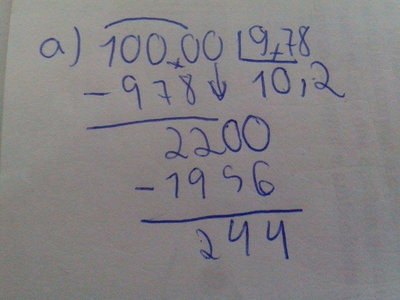 a) 100,00 9,78
- 978 10,2
2200
- 1956
244